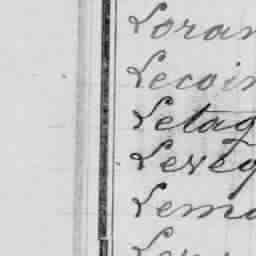 Loran
Lecoin
Letag
Leveq
Lema